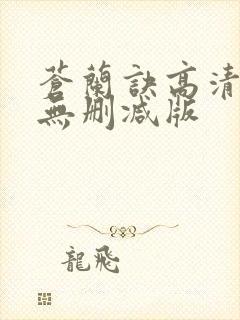 蒼蘭訣高清
無刪減版
龍飛